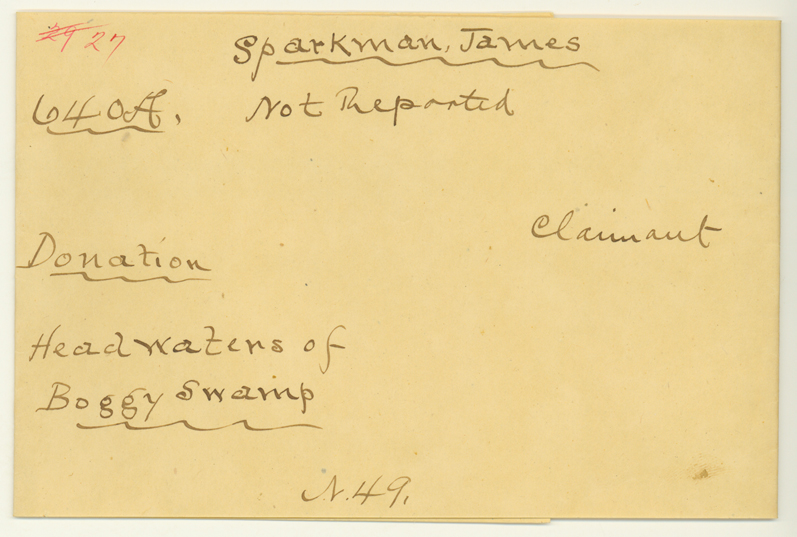 29 27
Sparkman, James
640A. Not Reported
Claimant
Donation
Headwaters of
Boggy Swamp
N.49.